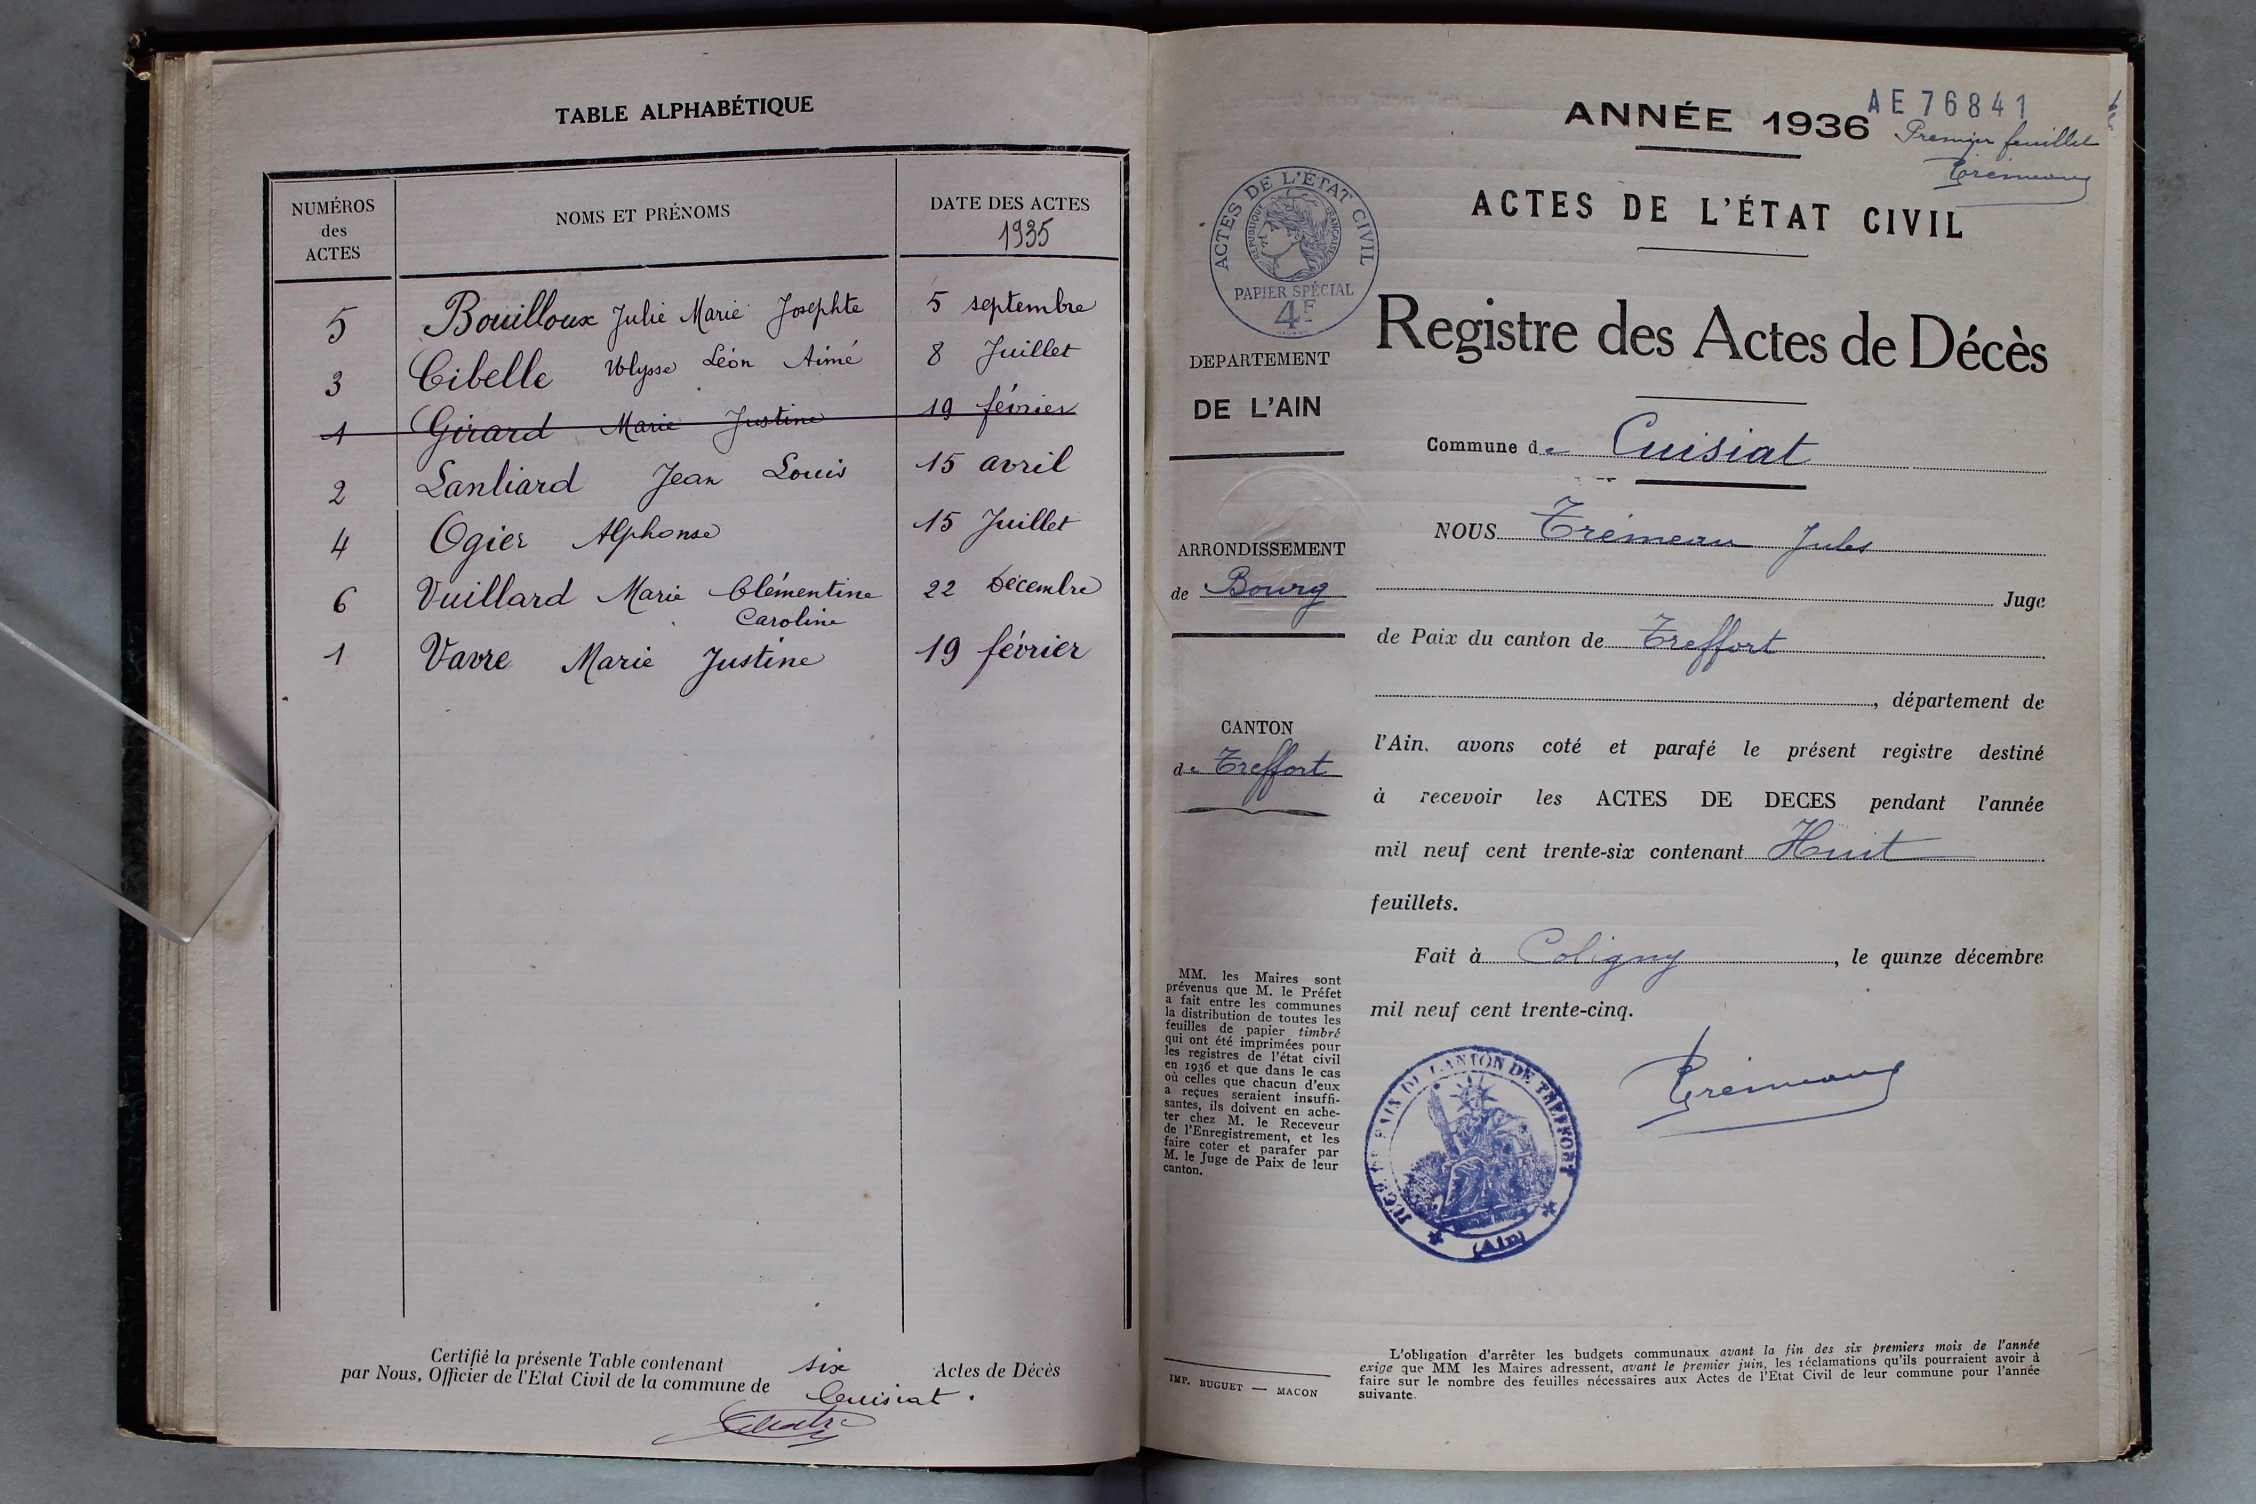 TABLE ALPHABÉTIQUE
NUMÉROS
des
ACTES
NOMS ET PRÉNOMS
DATE DES ACTES
1935
5 Bouilloux Julie Marie Josephte 5 septembre
3 Cibelle Ulysse Léon Aimé 8 Juillet
1 Girard Marie Justine 19 février
2 Lanliard Jean Louis 15 avril
4 Ogier Alphonse 15 Juillet
6 Vuillard Marie Clémentine 22 Décembre
Caroline
1 Vavre Marie Justine 19 février
Certifié la présente Table contenant six Actes de Décès
par Nous, Officier de l'Etat Civil de la commune de Cuisiat.
ANNÉE 1936
AE76841
Premier feuillet
Trémeau
ACTES DE L'ÉTAT CIVIL
ACTES DE L'ÉTAT CIVIL
RÉPUBLIQUE FRANÇAISE
PAPIER SPÉCIAL
4F
Registre des Actes de Décès
DEPARTEMENT
DE L'AIN
Commune de Cuisiat
ARRONDISSEMENT
de Bourg
CANTON
de Treffort
NOUS Trémeau Jules
Juge
de Paix du canton de Treffort
, département de
l'Ain, avons coté et parafé le présent registre destiné
à recevoir les ACTES DE DECES pendant l'année
mil neuf cent trente-six contenant Huit
feuillets.
Fait à Coligny, le quinze décembre
mil neuf cent trente-cinq.
Trémeau
JUGE DE PAIX DU CANTON DE TREFFORT
(Ain)
MM. les Maires sont
prévenus que M. le Préfet
a fait entre les communes
la distribution de toutes les
feuilles de papier timbré
qui ont été imprimées pour
les registres de l'état civil
en 1936 et que dans le cas
où celles que chacun d'eux
a reçues seraient insuffi-
santes, ils doivent en ache-
ter chez M. le Receveur
de l'Enregistrement, et les
faire coter et parafer par
M. le Juge de Paix de leur
canton.
IMP. BUGUET — MACON
L'obligation d'arrêter les budgets communaux avant la fin des six premiers mois de l'année
exige que MM les Maires adressent, avant le premier juin, les réclamations qu'ils pourraient avoir à
faire sur le nombre des feuilles nécessaires aux Actes de l'Etat Civil de leur commune pour l'année
suivante.